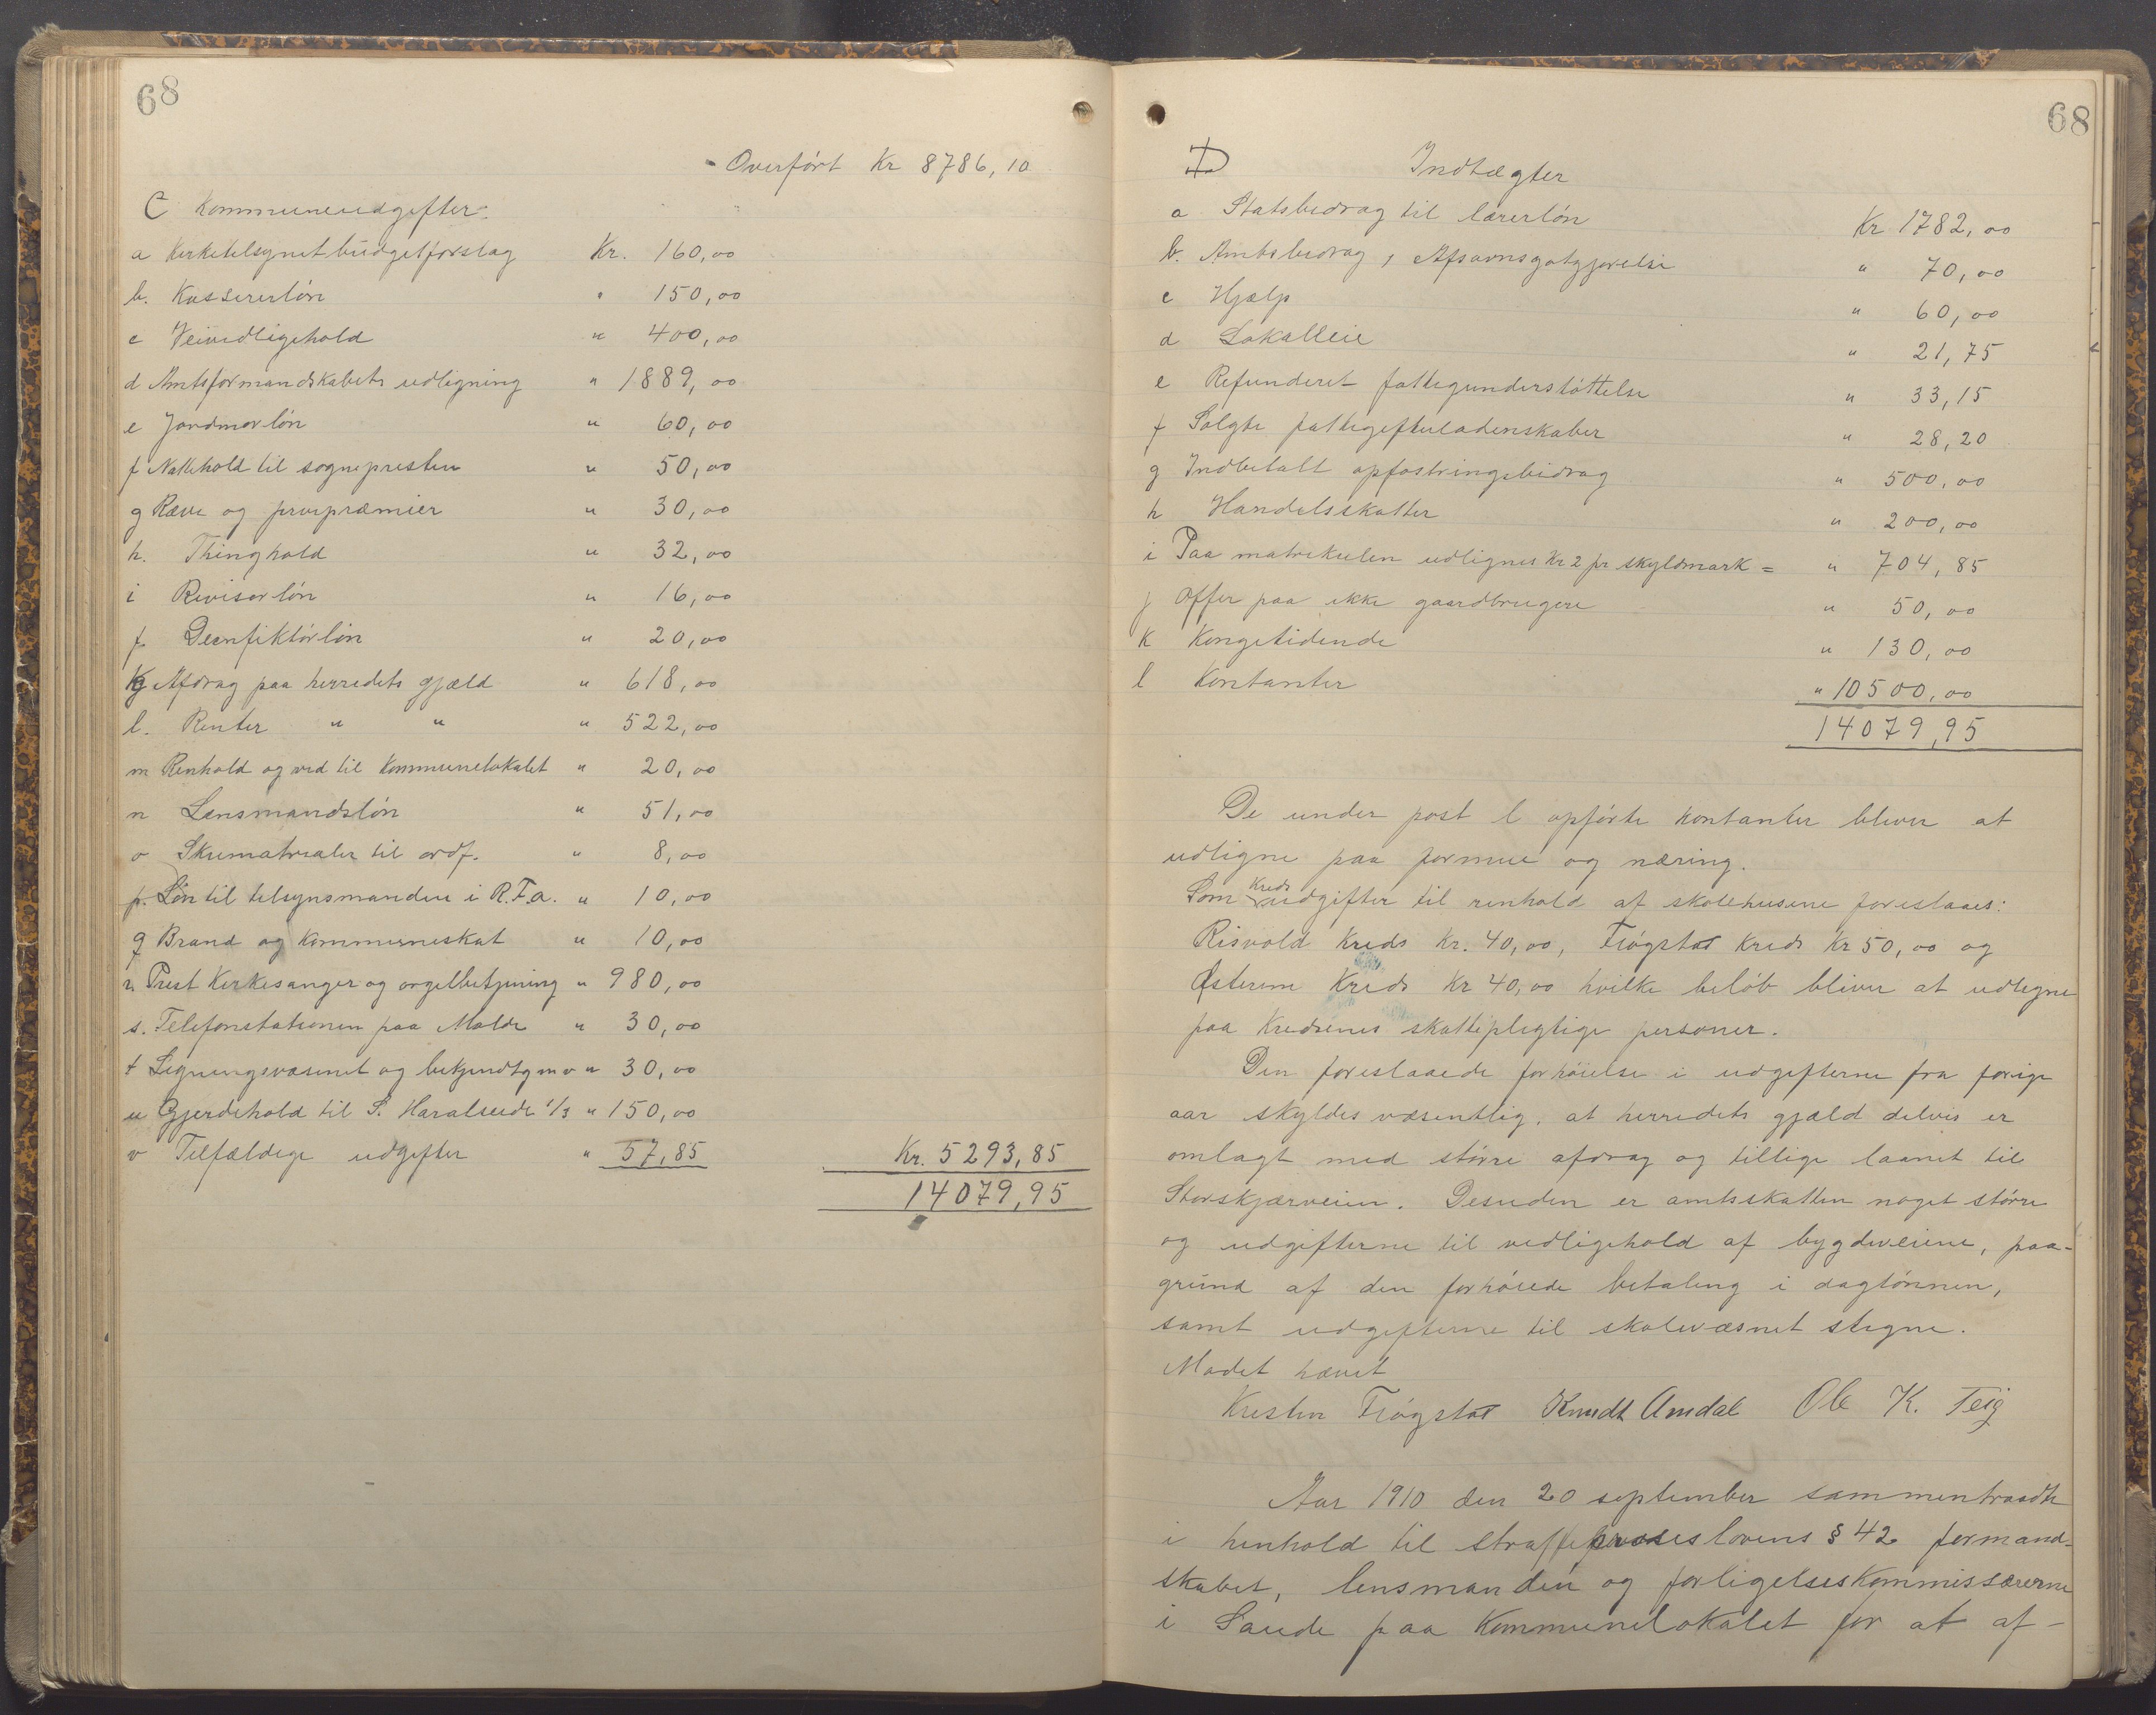 68
Overført Kr 8786,10
C Kommuneudgifter.
a Kirketilsynet budgetforslag Kr. 160,00
b. Kassererløn " 150,00
c Veivedligehold " 400,00
d Amtsformandskabets udligning " 1889,00
e Jordmorløn " 60,00
f Nattehold til sognepresten " 50,00
g Ræve og præmier " 30,00
h. Thinghold " 32,00
i Revisorløn " 16,00
j Desenfiktørløn " 20,00
k Afdrag paa herredets gjæld " 618,00
l. Renter " " " 522,00
m Renhold og ved til Kommunelokalet " 20,00
n Lensmandsløn " 51,00
o Skrimatrialer til ordf. " 8,00
p. Løn til tilsynsmanden i R.F.a. " 10,00
q Brand og Kommuneskat " 10,00
r. Prest Kirkesanger og orgelbetjening " 980,00
s. Telefonstationen paa Molde " 30,00
t Ligningsvæsenet og bekjendtg m v " 30,00
u Gjerdehold til S. 1/3 " 150,00
v Tilfældige udgifter " 57,85 Kr. 5293,85
14079,95
68
D Indtægter
a Statsbidrag til lærerløn Kr 1782,00
b. Amtsbidrag, Afsavnsgotgjørelse " 70,00
c Hjælp " 60,00
d Lokalleie " 21,75
e Refunderet fattigunderstøttelse " 33,15
f Solgte fattigefterladenskaber " 28,20
g Indbetalt opfostringsbidrag " 500,00
h Handelsskatter " 200,00
i Paa matrikulen udlignes Kr 2 pr skyldmark = " 704,85
j Offer paa ikke gaardbrugere " 50,00
k Kongetidende " 130,00
l Kontanter " 10500,00
14079,95
De under post l opførte kontanter bliver at
udligne paa formue og næring.
Som Kreds udgifter til renhold af skolehusene foreslaaes:
Risvold Kreds Kr. 40,00, Frøgstad Kreds Kr 50,00 og
Østerem Kreds Kr 40,00 hvilke beløb bliver at udligne
paa Kredsenes skattepligtige personer.
Den foreslaaede forhøielse i udgifterne fra forige
aar skyldes væsentlig, at herredets gjæld delvis er
omlagt med større afdrag og tillige laanet til
Storskjærveien. Desuden er amtsskatten noget større
og udgifterne til vedligehold af bygdeveiene, paa-
grund af den forhøiede betaling i daglønnen,
samt udgifterne til skolevæsnet stigne.
Mødet hævet
Kristen Frøgstad Knudt Amdal Ole K. Teig
Aar 1910 den 20 september sammentraadte
i henhold til straffeproseslovens § 42 formand-
skabet, lensmanden og forligelseskommissærerne
i Saude paa Kommunelokalet for at af-